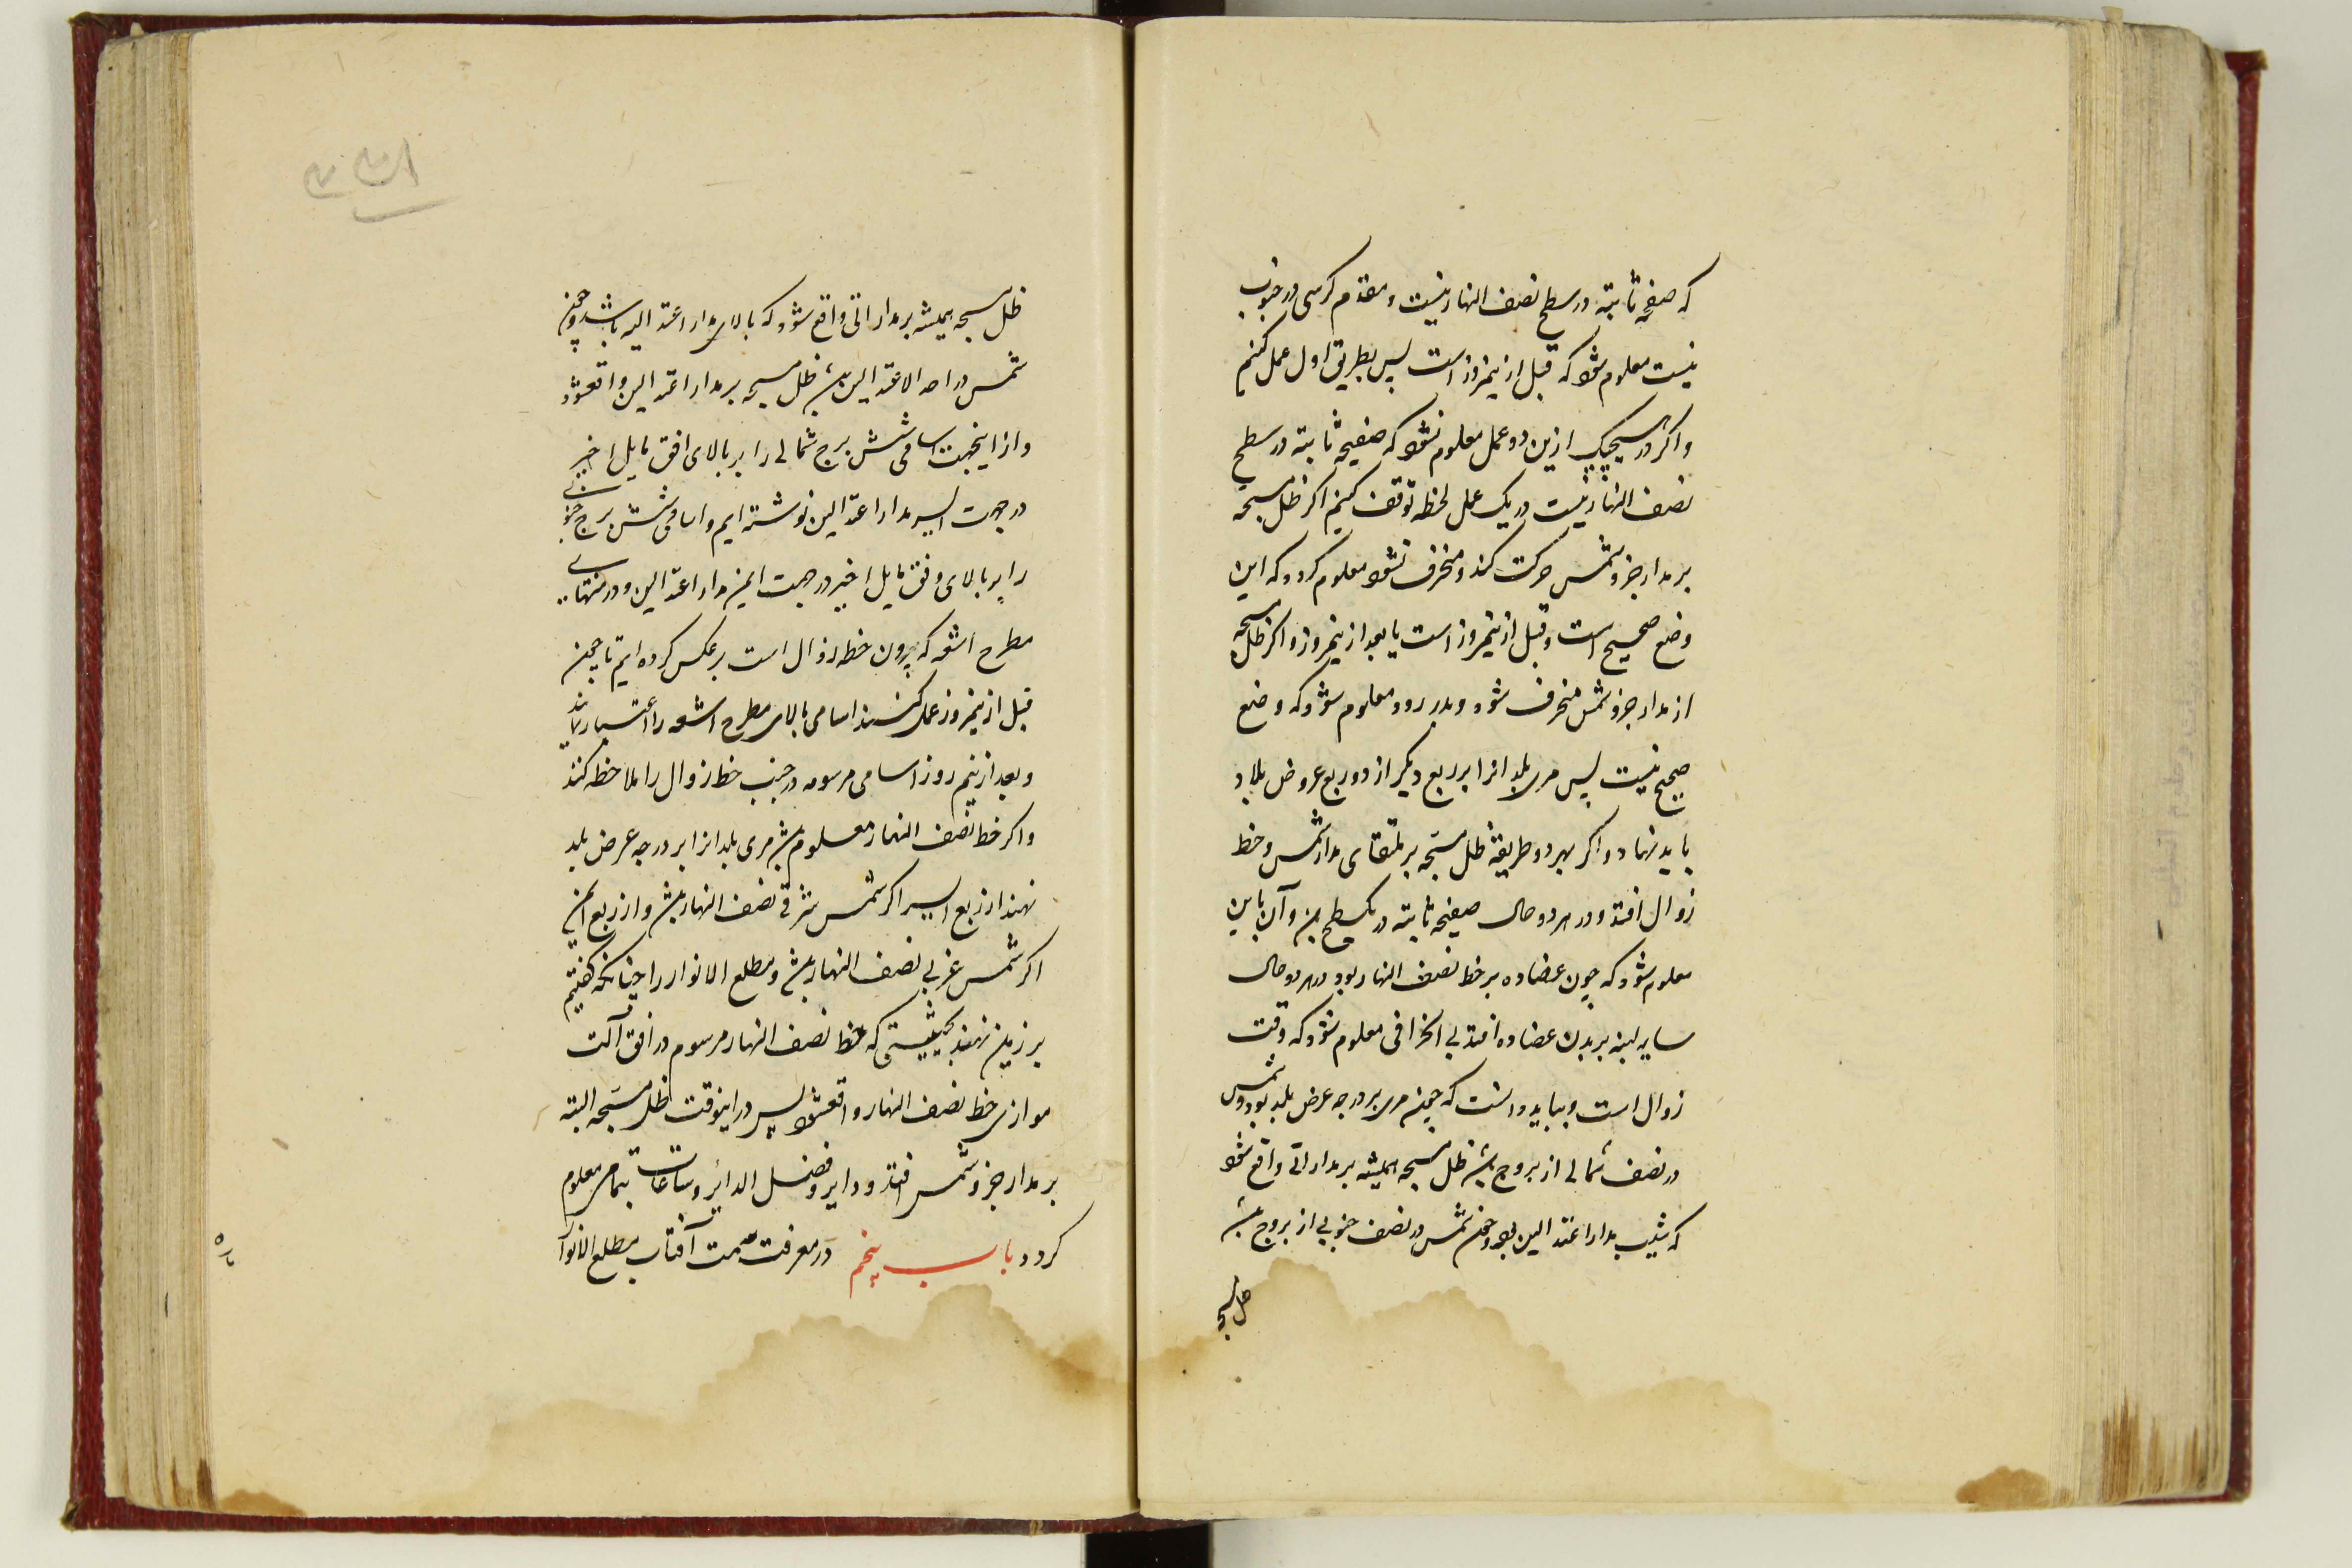 که صفحه ثابته در سطح نصف النهار نیست و مقدم کرسی در جنوب
نیست معلوم شود که قبل از نیمروز است پس بطریق اول عمل کنیم
واکر در هیچیک ازین دو عمل معلوم نشود که صفیحه ثابته در سطح
نصف النهار نیست در یک عمل لحظه توقف کنیم اکر ظل مسبحه
بر مدار جزو شمس حرکت کند و منحرف نشود معلوم کردد که این
وضع صحیح است و قبل از نیمروز است یا بعد از نیمروز واکر ظل مسبحه
از مدار جزو شمس منحرف شود و بدر رود معلوم شود که وضع
صحیح نیست پس مری بلدانرا بر ربع دیکر از دو ربع عروض بلاد
باید نهاد واکر بهر دو طریقه ظل مسبحه بر ملتقای مدار شمس و خط
زوال افتد و در هر دو حال صفیحه ثابته در یک سطح و آن باین
معلوم شود که چون عضاده بر خط نصف النهار بود در هر دو حال
سایه لبنه بر بدن عضاده افتد بی انحرافی معلوم شود که وقت
زوال است و بباید دانست که چون مری بر درجه عرض بلد بود و شمس
در نصف شمالی از بروج باشد ظل مسبحه همیشه بر مداراتی واقع شود
که شیب مدار اعتدالین بود و چون شمس در نصف جنوبی از بروج باشد
ظل مسبحه
ظل مسبحه همیشه بر مداراتی واقع شود که بالای مدار اعتدالیه باشد و چون
شمس در احد الاعتدالین باشد ظل مسبحه بر مدار اعتدالین واقع شود
وازاینجهت اسامی شش برج شمالی را بر بالای افق مایل اخیر
در جهت ایسر مدار اعتدالین نوشته ایم و اسامی شش برج جنوبی
را بر بالای وفق مایل اخیر در جهت ایمن مدار اعتدالین و در منتهای
مطرح اشعه که بیرون خط زوال است برعکس کرده ایم تا چون
قبل از نیمروز عمل کنند اسامی بالای مطرح اشعه را اعتبار نمایند
و بعد از نیم روز اسامی مرسومه در جنب خط زوال را ملاحظه کنند
واکر خط نصف النهار معلوم باشد مری بلدانرا بر درجه عرض بلد
نهند از ربع ایسر اکر شمس شرقی نصف النهار باشد و از ربع ایمن
اکر شمس غربی نصف النهار باشد و مطلع الانوار را چنانکه کفتیم
بر زمین نهند بحیثیتی که خط نصف النهار مرسوم در افق آلت
موازی خط نصف النهار واقع شود پس در اینوقت ظل مسبحه البته
بر مدار جزو شمس افتد و دایر و فضل الدایر و ساعات بتمامی معلوم
کردد باب پنجم در معرفت سمت آفتاب بمطلع الانوار